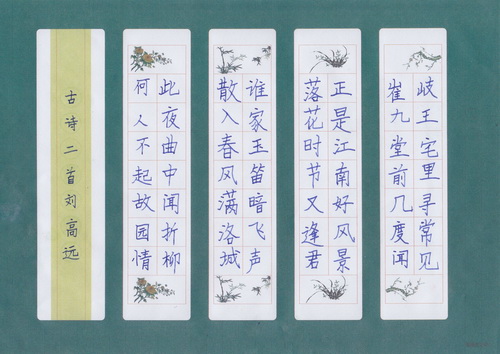 岐王宅里寻常见
崔九堂前几度闻
正是江南好风景
落花时节又逢君
谁家玉笛暗飞声
散入春风满洛城
此夜曲中闻折柳
何人不起故园情
古诗二首刘高远